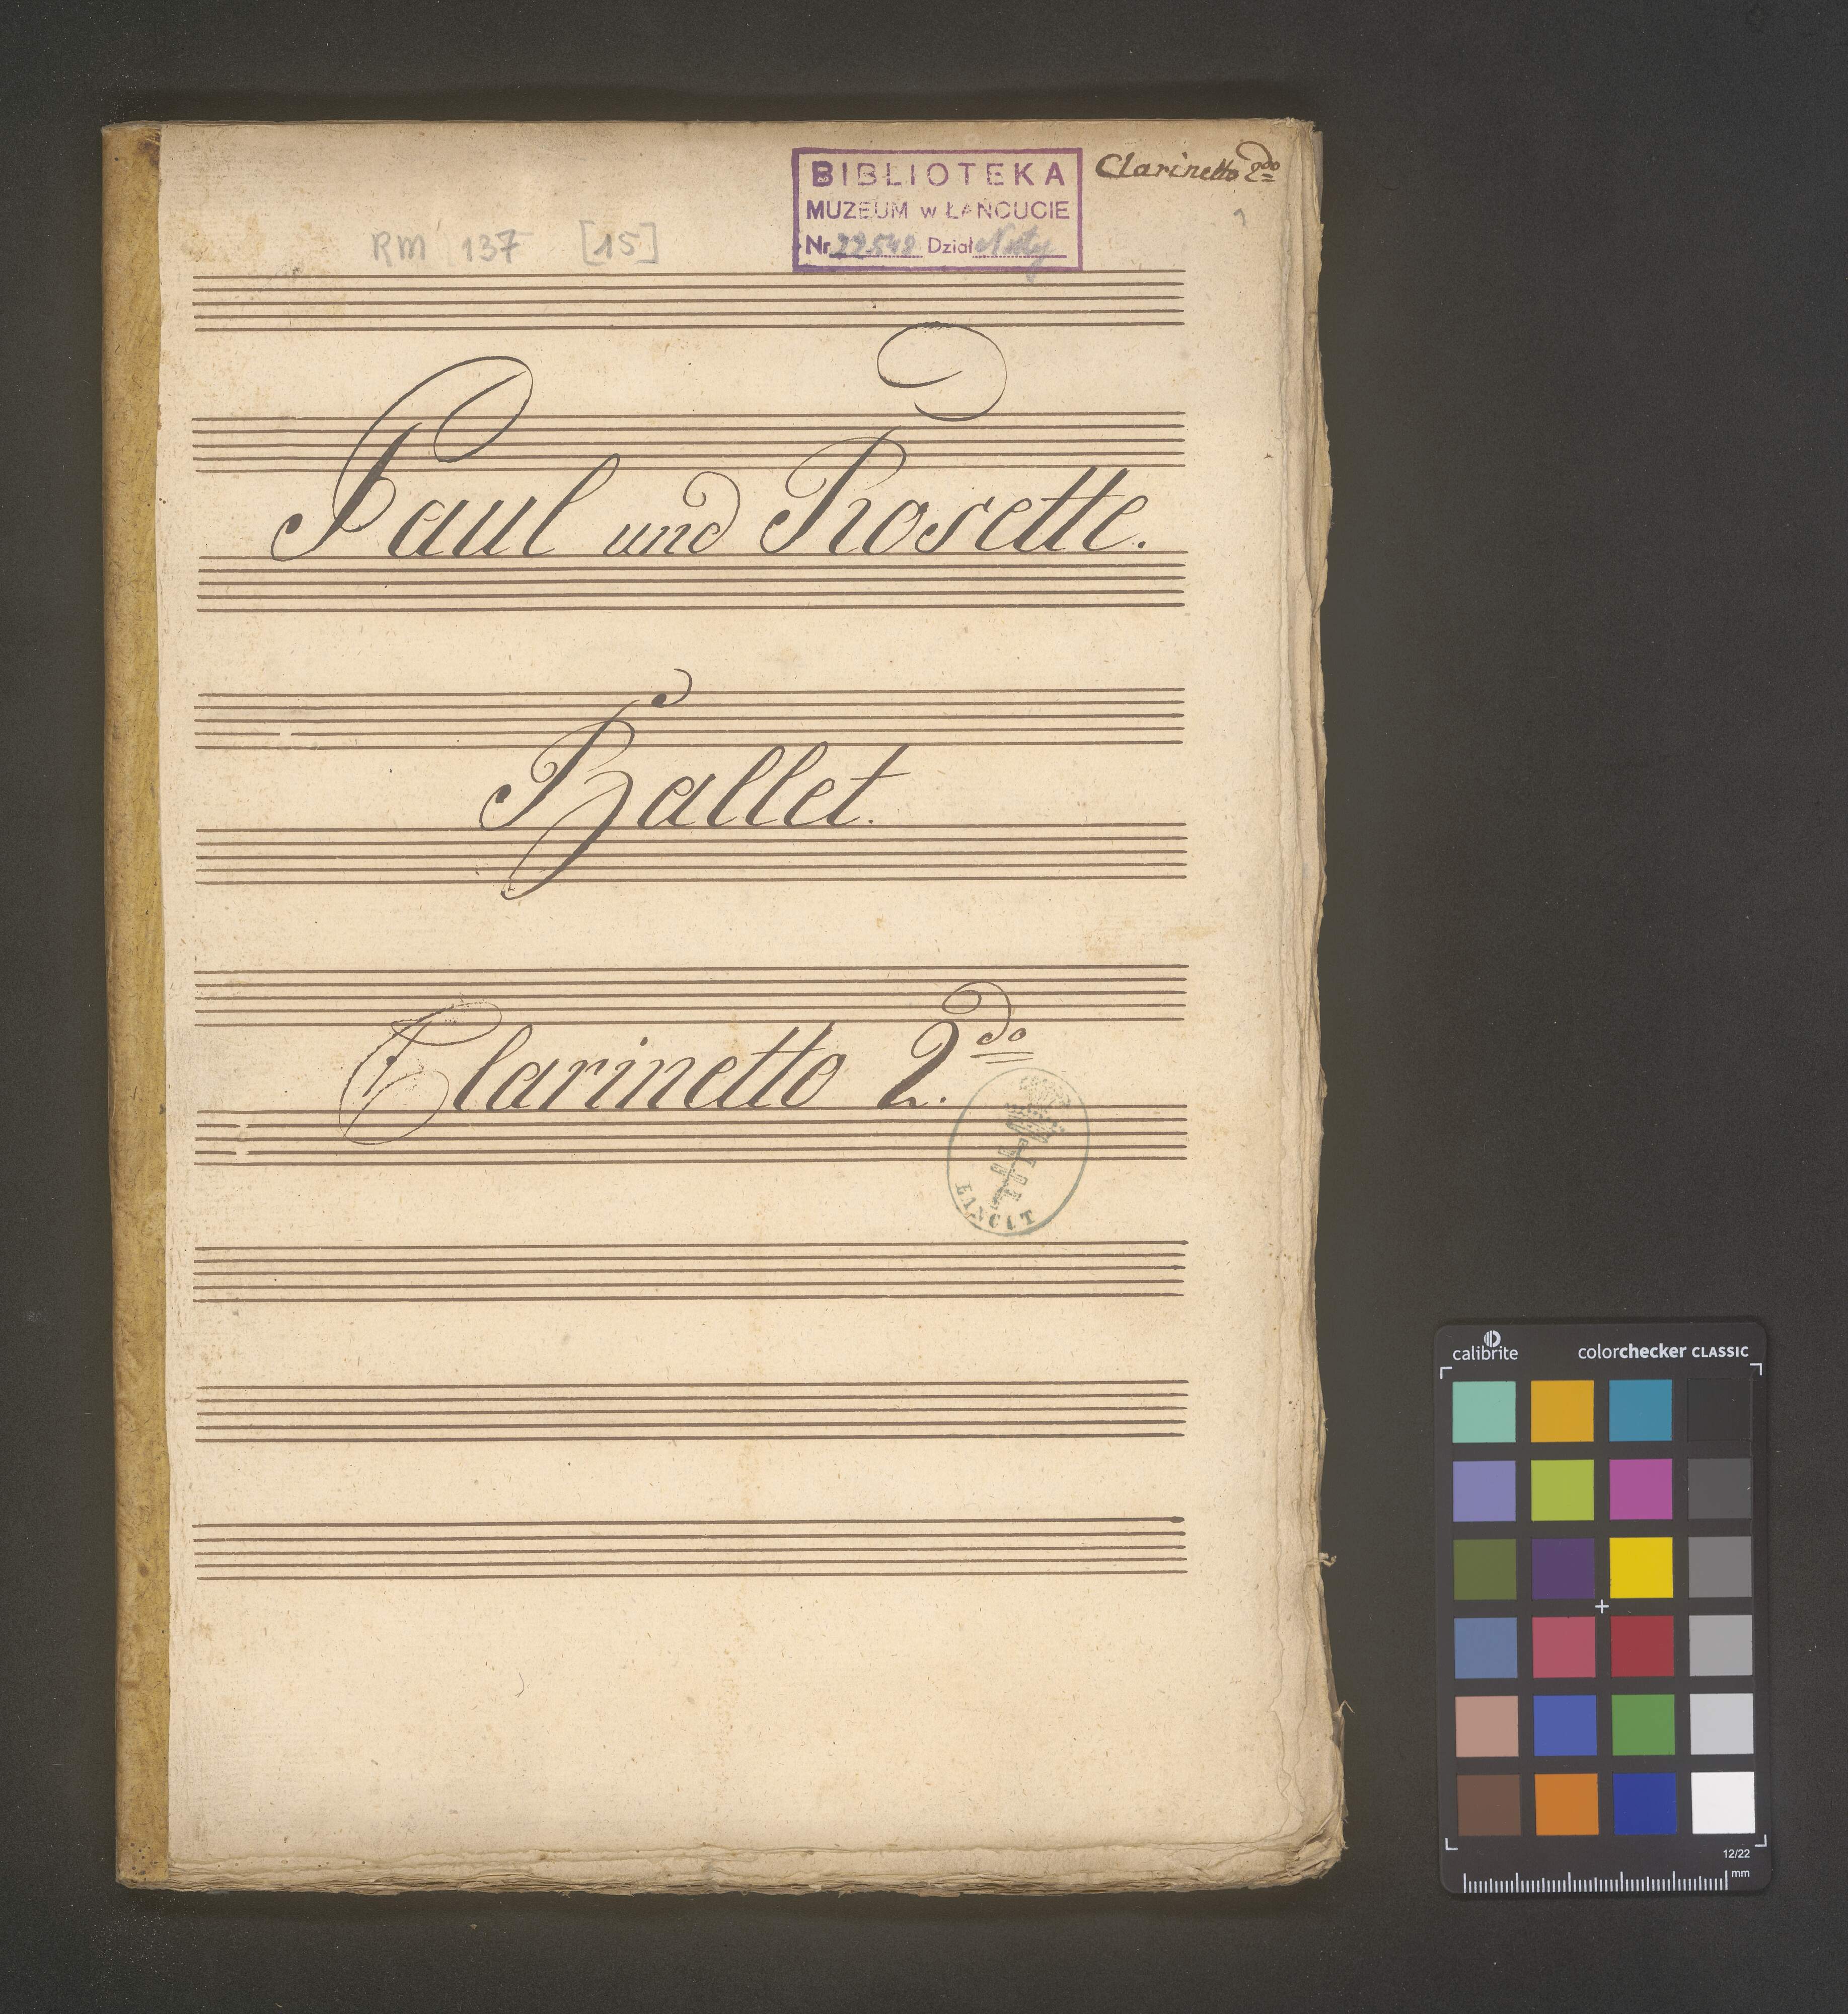 BIBLIOTEKA
MUZEUM w ŁAŃCUCIE
Nr 22548 Dział Nuty
Clarinetto 2do
1
RM 137 [15]
Paul und Rosette.
Ballet.
Clarinetto 2.do
ŁAŃCUT
calibrite colorchecker CLASSIC
12/22
mm